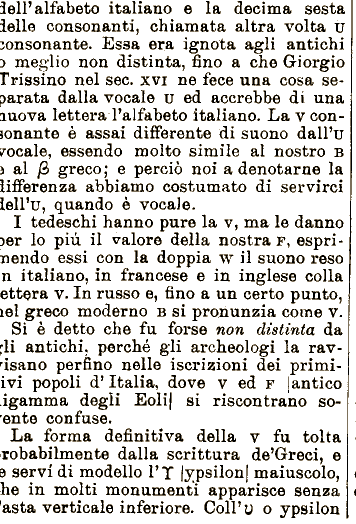 dell'alfabeto italiano e la decima sesta
delle consonanti, chiamata altra volta U
consonante. Essa era ignota agli antichi
o meglio non distinta, fino a che Giorgio
Trissino nel sec. XVI ne fece una cosa se-
parata dalla vocale U ed accrebbe di una
nuova lettera l'alfabeto italiano. La v con-
sonante è assai differente di suono dall'U
vocale, essendo molto simile al nostro B
o al β greco; e perciò noi a denotarne la
differenza abbiamo costumato di servirci
dell'U, quando è vocale.
I tedeschi hanno pure la V, ma le danno
per lo piú il valore della nostra F, espri-
mendo essi con la doppia W il suono reso
in italiano, in francese e in inglese colla
lettera V. In russo e, fino a un certo punto,
nel greco moderno B si pronunzia come V.
Si è detto che fu forse non distinta da
gli antichi, perché gli archeologi la rav-
visano perfino nelle iscrizioni dei primi-
tivi popoli d'Italia, dove V ed F |antico
digamma degli Eoli| si riscontrano so-
vente confuse.
La forma definitiva della V fu tolta
probabilmente dalla scrittura de'Greci, e
le serví di modello l'ϒ |ypsilon| maiuscolo,
che in molti monumenti apparisce senza
l'asta verticale inferiore. Coll'υ o ypsilon